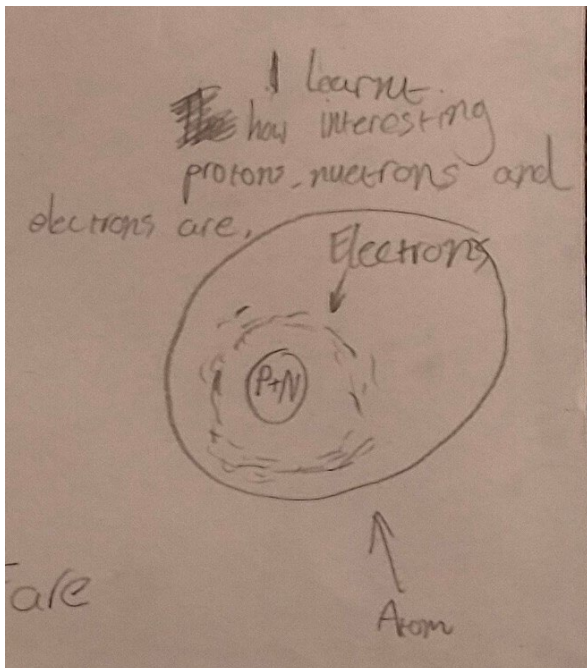 I learnt
how interesting
protons, nuetrons and
electrons are.
Electrons
P+N
Atom
are